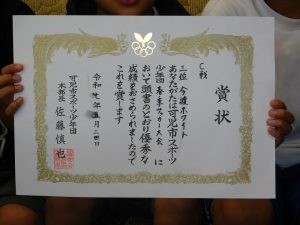 C戦
賞状
三位 今渡ホワイト
あなたがたは可児市スポーツ
少年団春季サッカー大会 に
おいて頭書のとおり優秀な
成績をおさめられましたので
これを賞します
令和 年 月 日
可児市スポーツ少年団
本部長 佐藤慎也